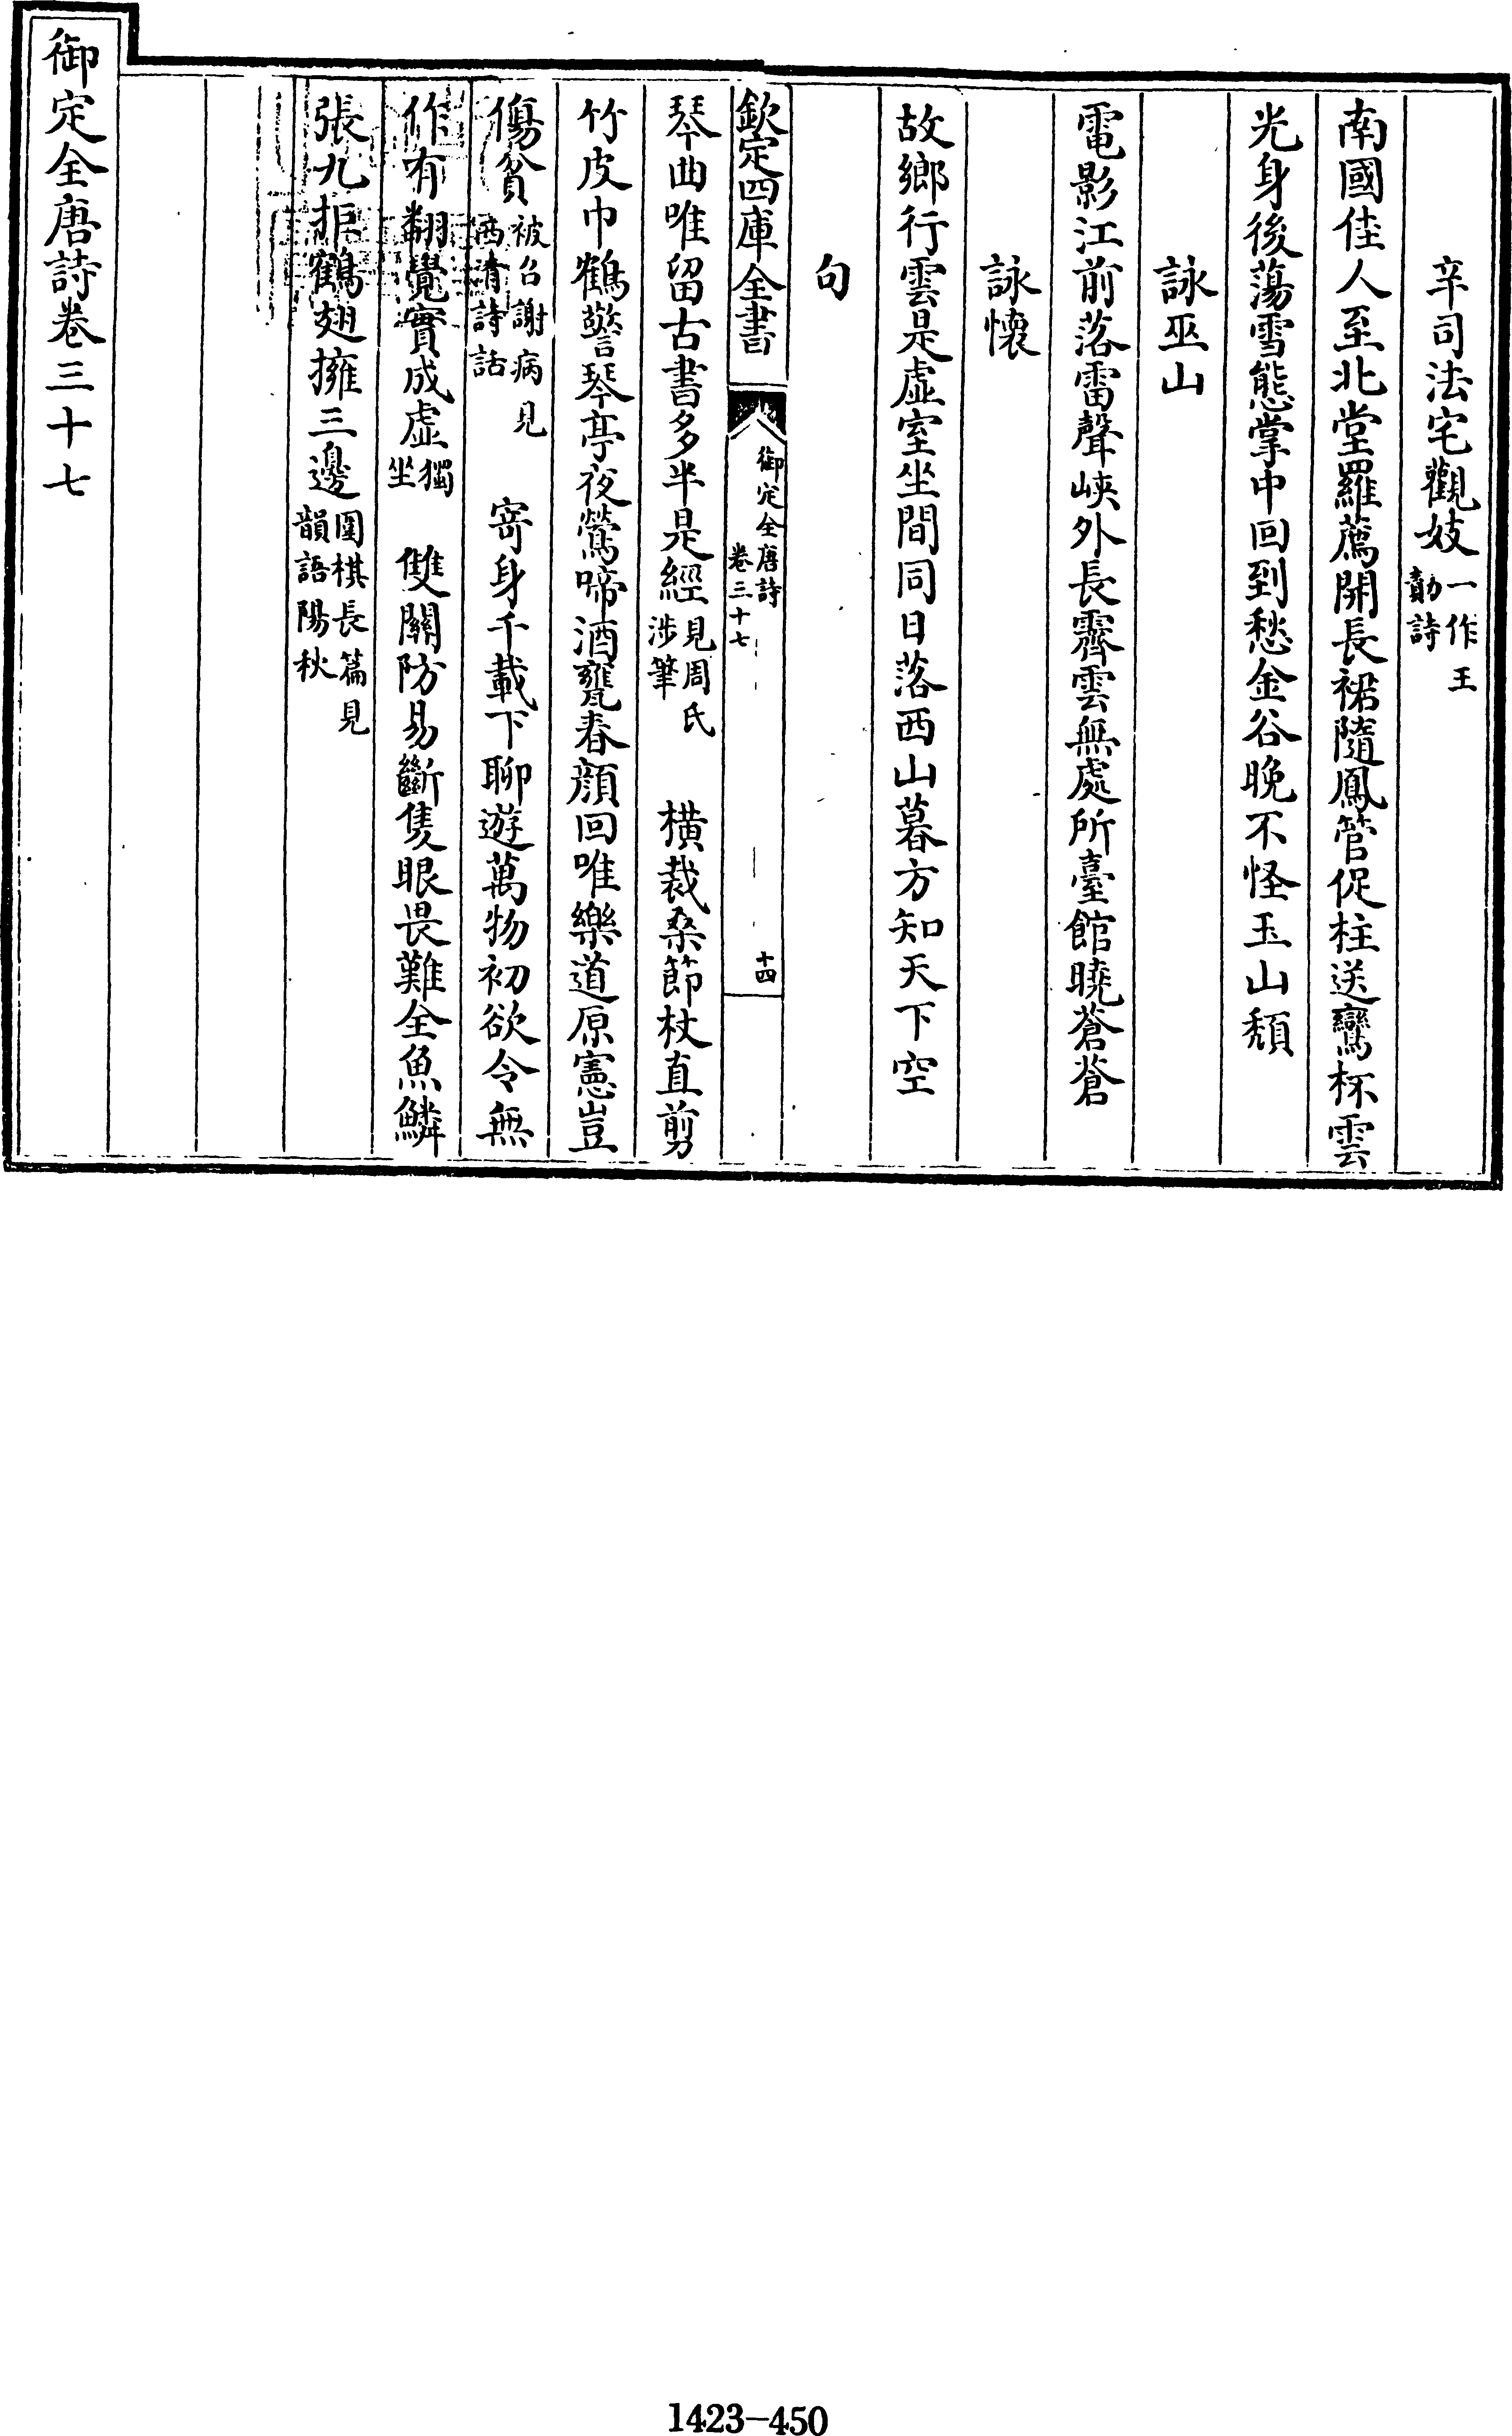 辛司法宅觀妓一作王勣詩
南國佳人至北堂羅薦開長裙隨鳳管促柱送鸞杯雲
光身後蕩雪態掌中回到愁金谷晚不怪玉山頹
詠巫山
電影江前落雷聲峽外長霽雲無處所臺館曉蒼蒼
詠懷
故鄉行雲是虛室坐間同日落西山暮方知天下空
句
欽定四庫全書 御定全唐詩卷三十七 十四
琴曲唯留古書多半是經見周氏涉筆 橫裁桑節杖直剪
竹皮巾鶴警琴亭夜鶯啼酒甕春顏回唯樂道原憲豈
傷貧被召謝病見西清詩話 寄身千載下聊遊萬物初欲令無
作有翻覺實成虛獨坐 雙關防易斷隻眼畏難全魚鱗
張九拒鶴翅擁三邊圍棋長篇見韻語陽秋
御定全唐詩卷三十七
1423-450